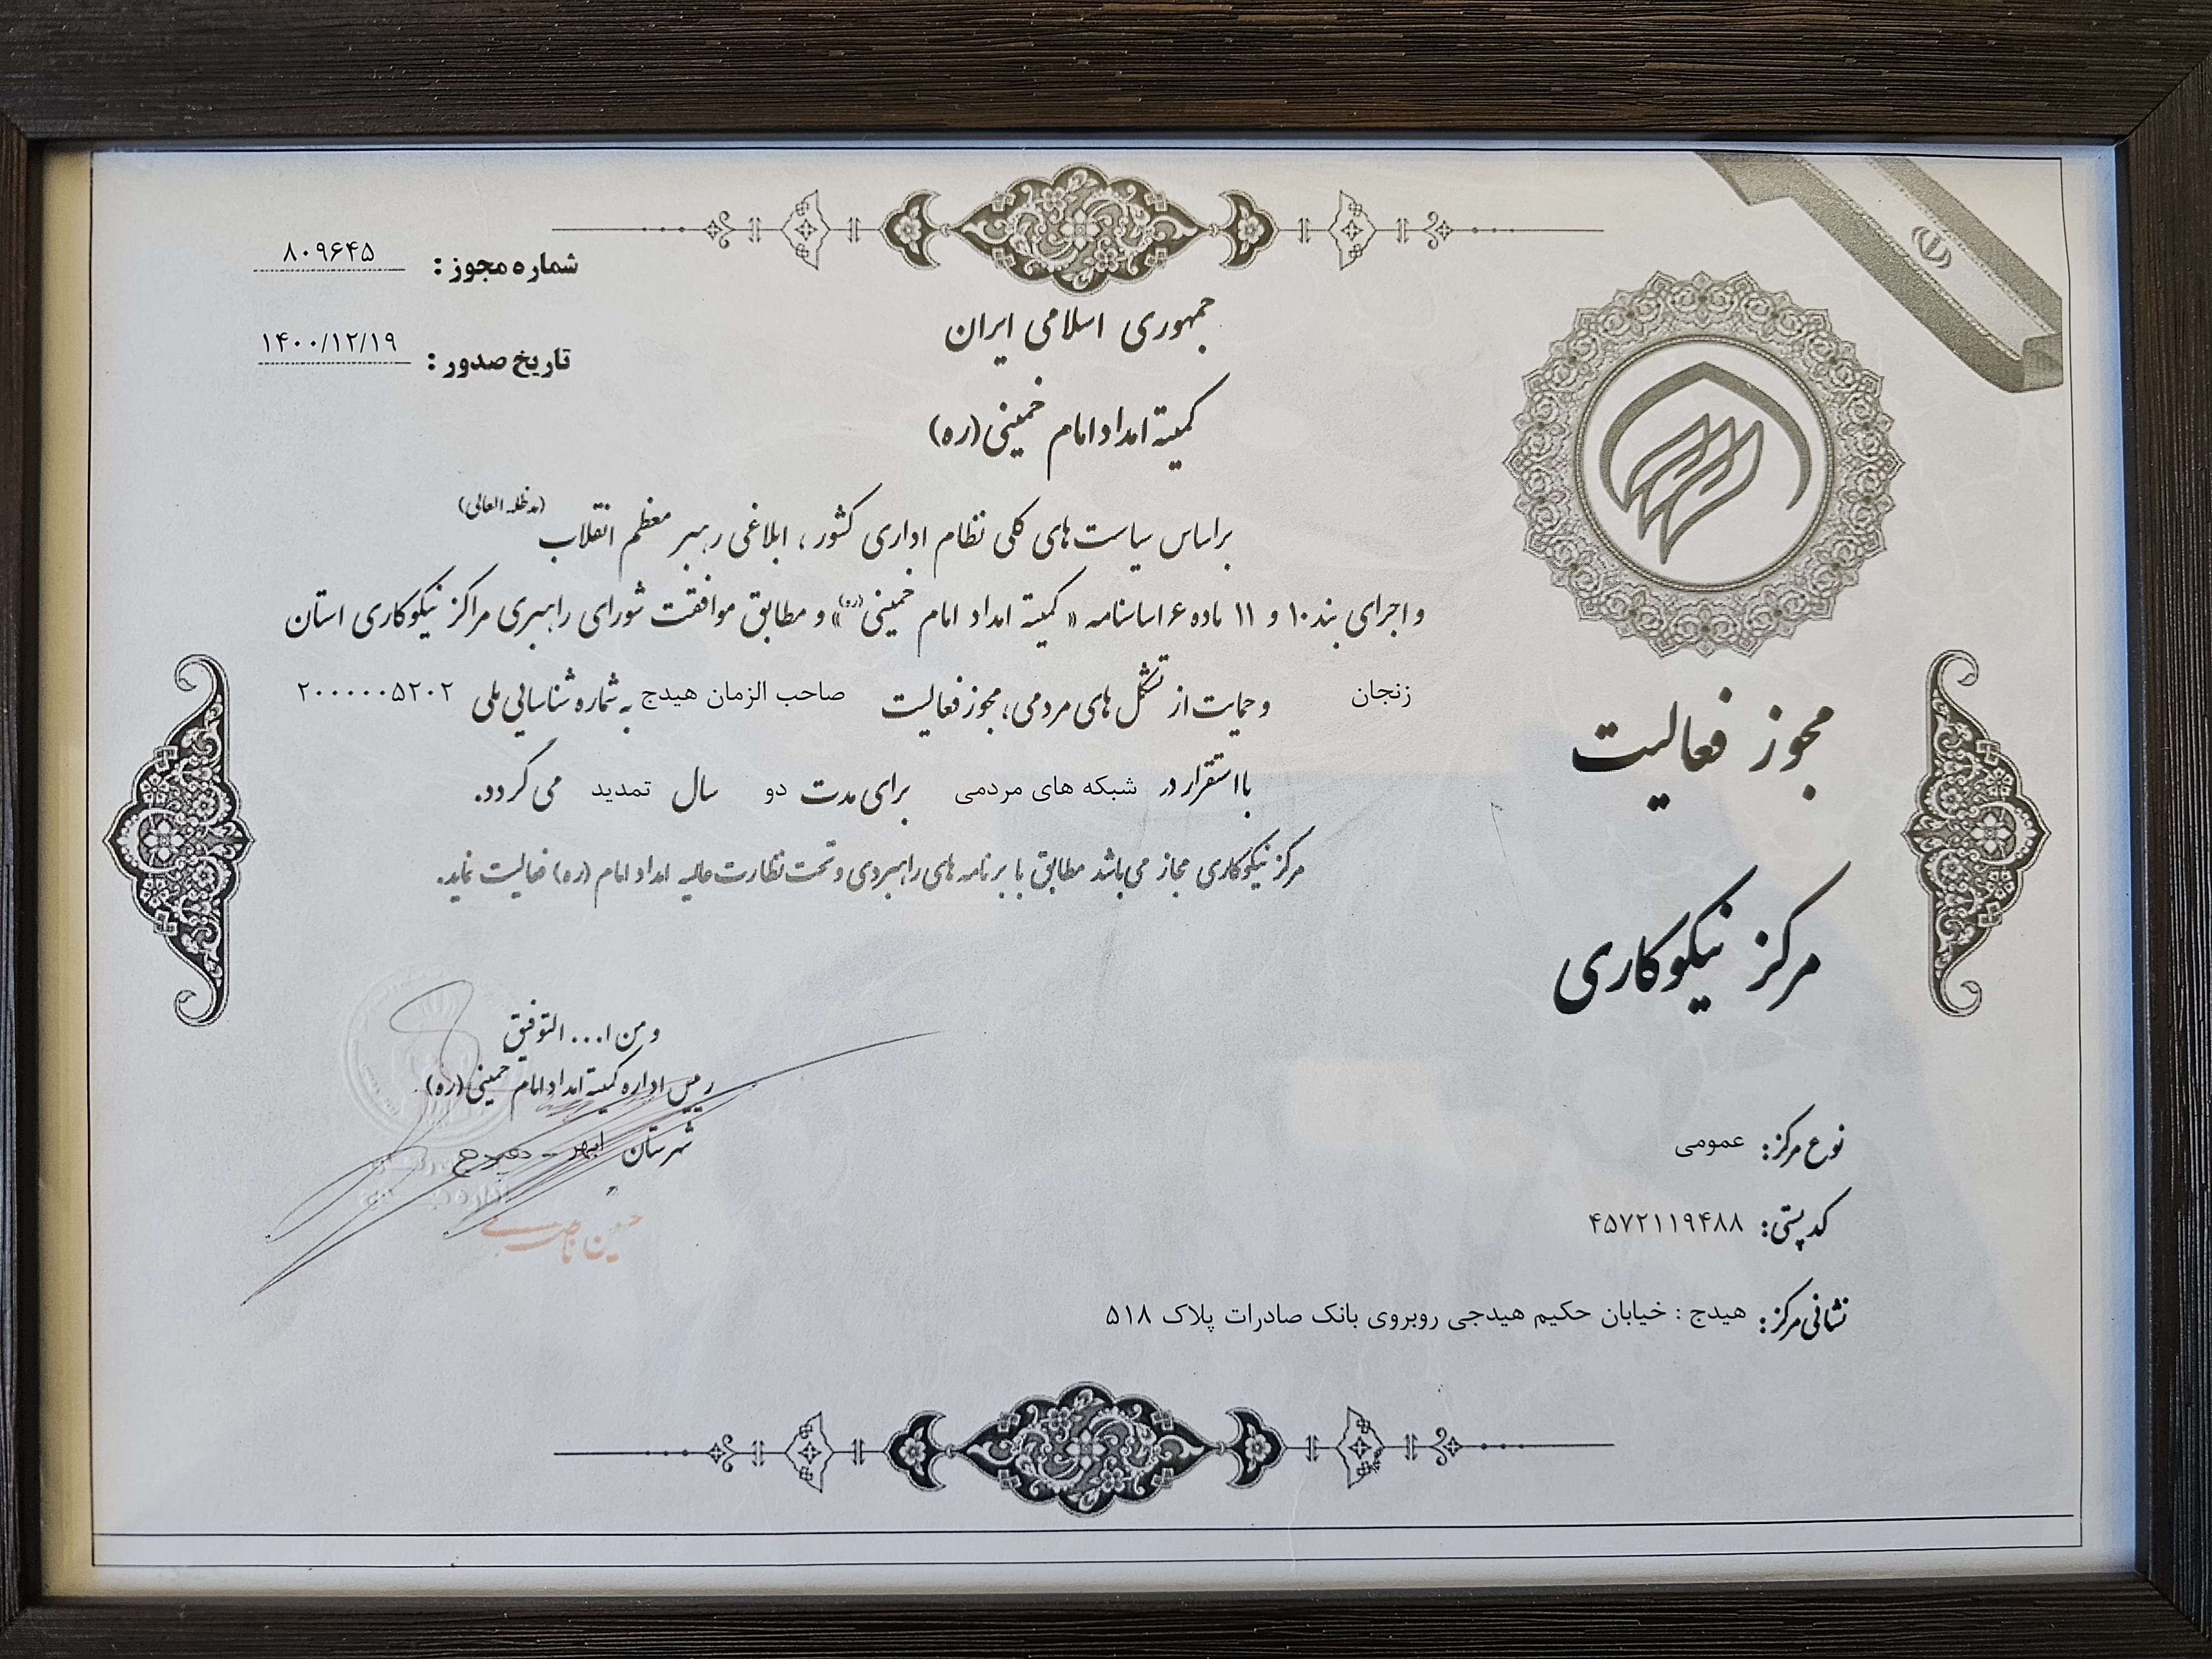 شماره مجوز : ۸۰۹۶۴۵
تاریخ صدور : ۱۴۰۰/۱۲/۱۹
جمهوری اسلامی ایران
کمیته امداد امام خمینی (ره)
براساس سیاست های کلی نظام اداری کشور ، ابلاغی رهبر معظم انقلاب (مدظله العالی)
و اجرای بند ۱۰ و ۱۱ ماده ۶ اساسنامه « کمیته امداد امام خمینی (ره) » و مطابق موافقت شورای راهبری مراکز نیکوکاری استان
زنجان و حمایت از تشکل های مردمی، مجوز فعالیت صاحب الزمان هیدج به شماره شناسایی ملی ۲۰۰۰۰۰۵۲۰۲
با استقرار در شبکه های مردمی برای مدت دو سال تمدید می گردد.
مرکز نیکوکاری مجاز می باشد مطابق با برنامه های راهبردی و تحت نظارت عالیه امداد امام (ره) فعالیت نماید.
مجوز فعالیت
مرکز نیکوکاری
و من ا... التوفیق
رییس اداره کمیته امداد امام خمینی (ره)
شهرستان ابهر -
نوع مرکز: عمومی
کد پستی: ۴۵۷۲۱۱۹۴۸۸
نشانی مرکز: هیدج : خیابان حکیم هیدجی روبروی بانک صادرات پلاک ۵۱۸